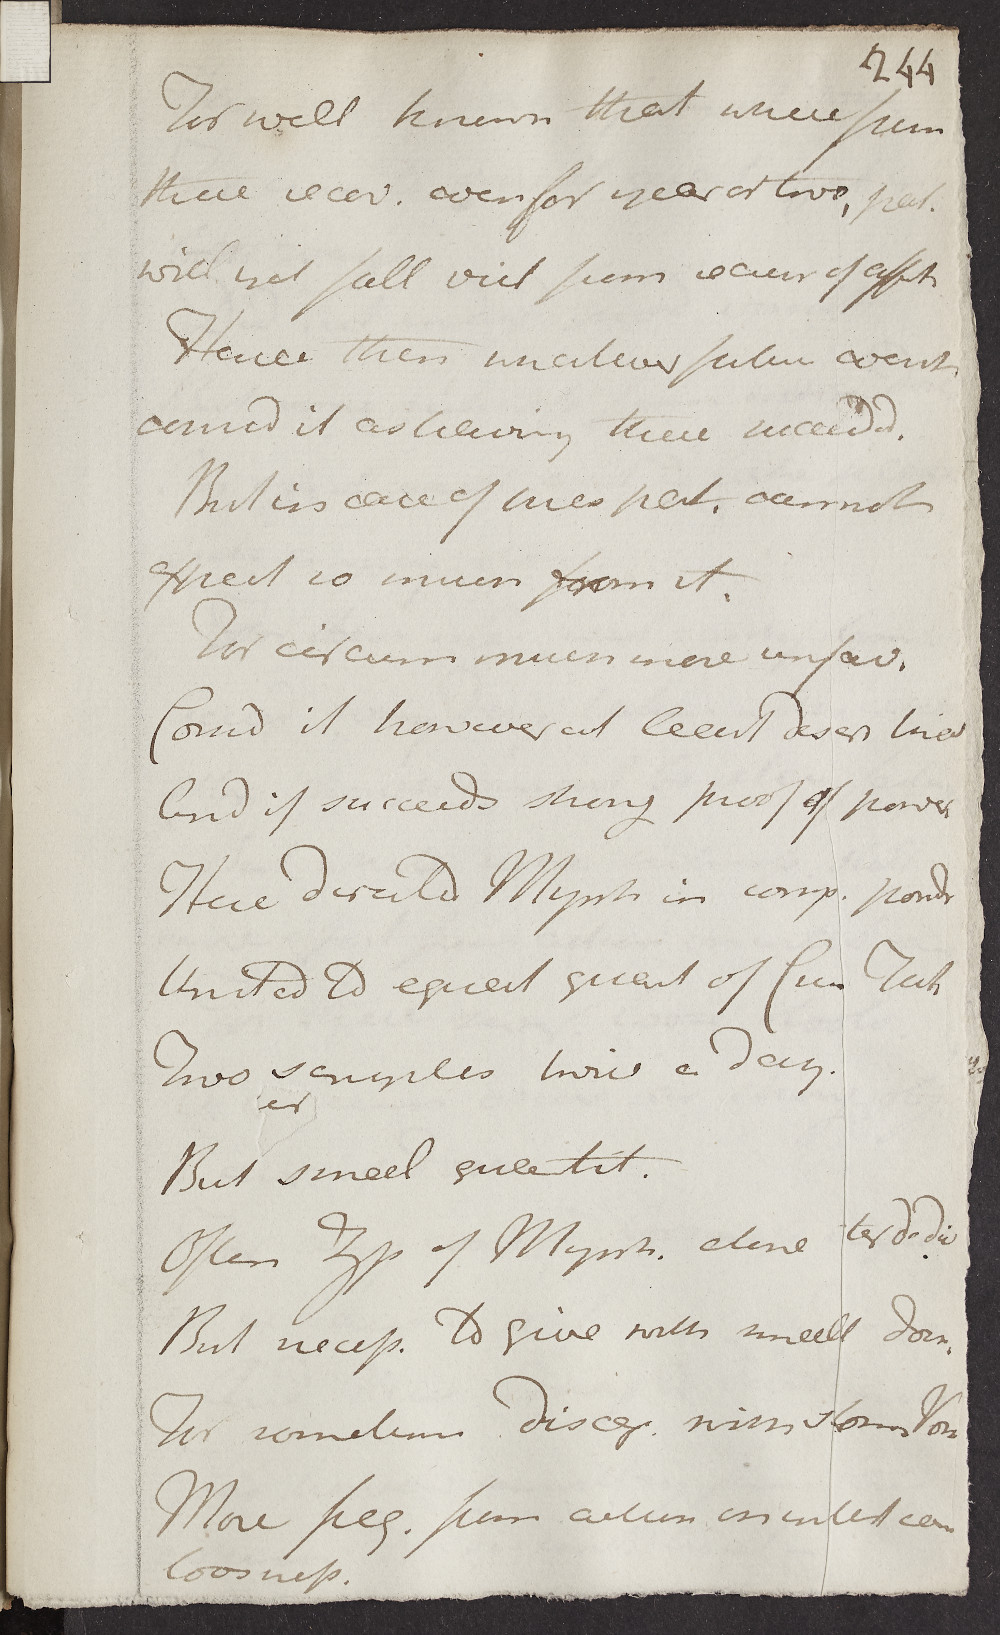 244
Tis well known that where from
there recov. even for year or two, pat.
will yet fall vict from recur of affect
Hence then whatever future event
consid it as having there succeedd.
But in case of this pat. cannot
expect so much from it.
For circum much more unfav.
Consid it however at least deser trial
And if succeeds strong proof of power
Have directed Myrrh in comp. powdr
United to equal quant of Crem Tart
Two scruples twice a day.
er
But small quantit.
Often ʒss of Myrrh. alone ter de die
But necess. to give with small dose.
For sometimes disag. with stom Vom
More freq. from action on intest
loosness.